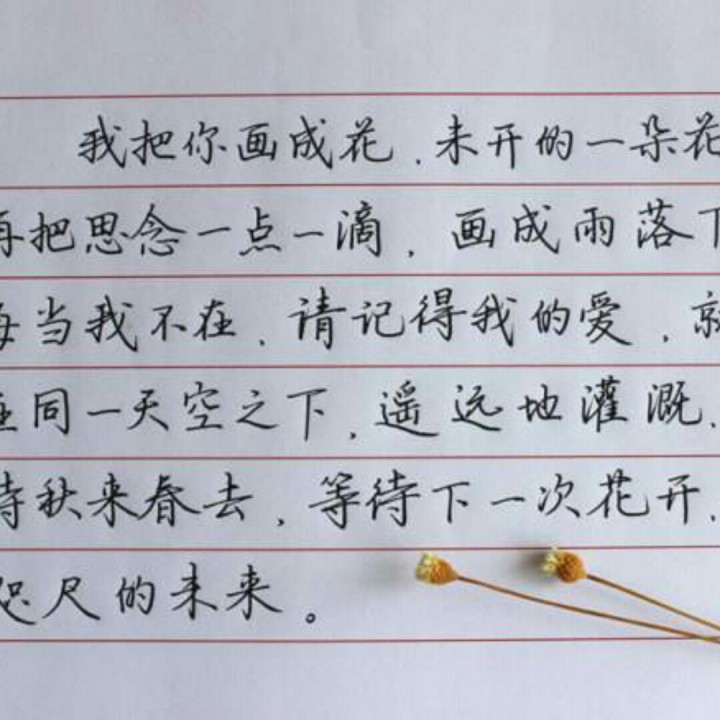 我把你画成花．未开的一朵花
再把思念一点一滴．画成雨落下
每当我不在．请记得我的爱．就
在同一天空之下．遥远地灌溉．
待秋来春去．等待下一次花开．
咫尺的未来。